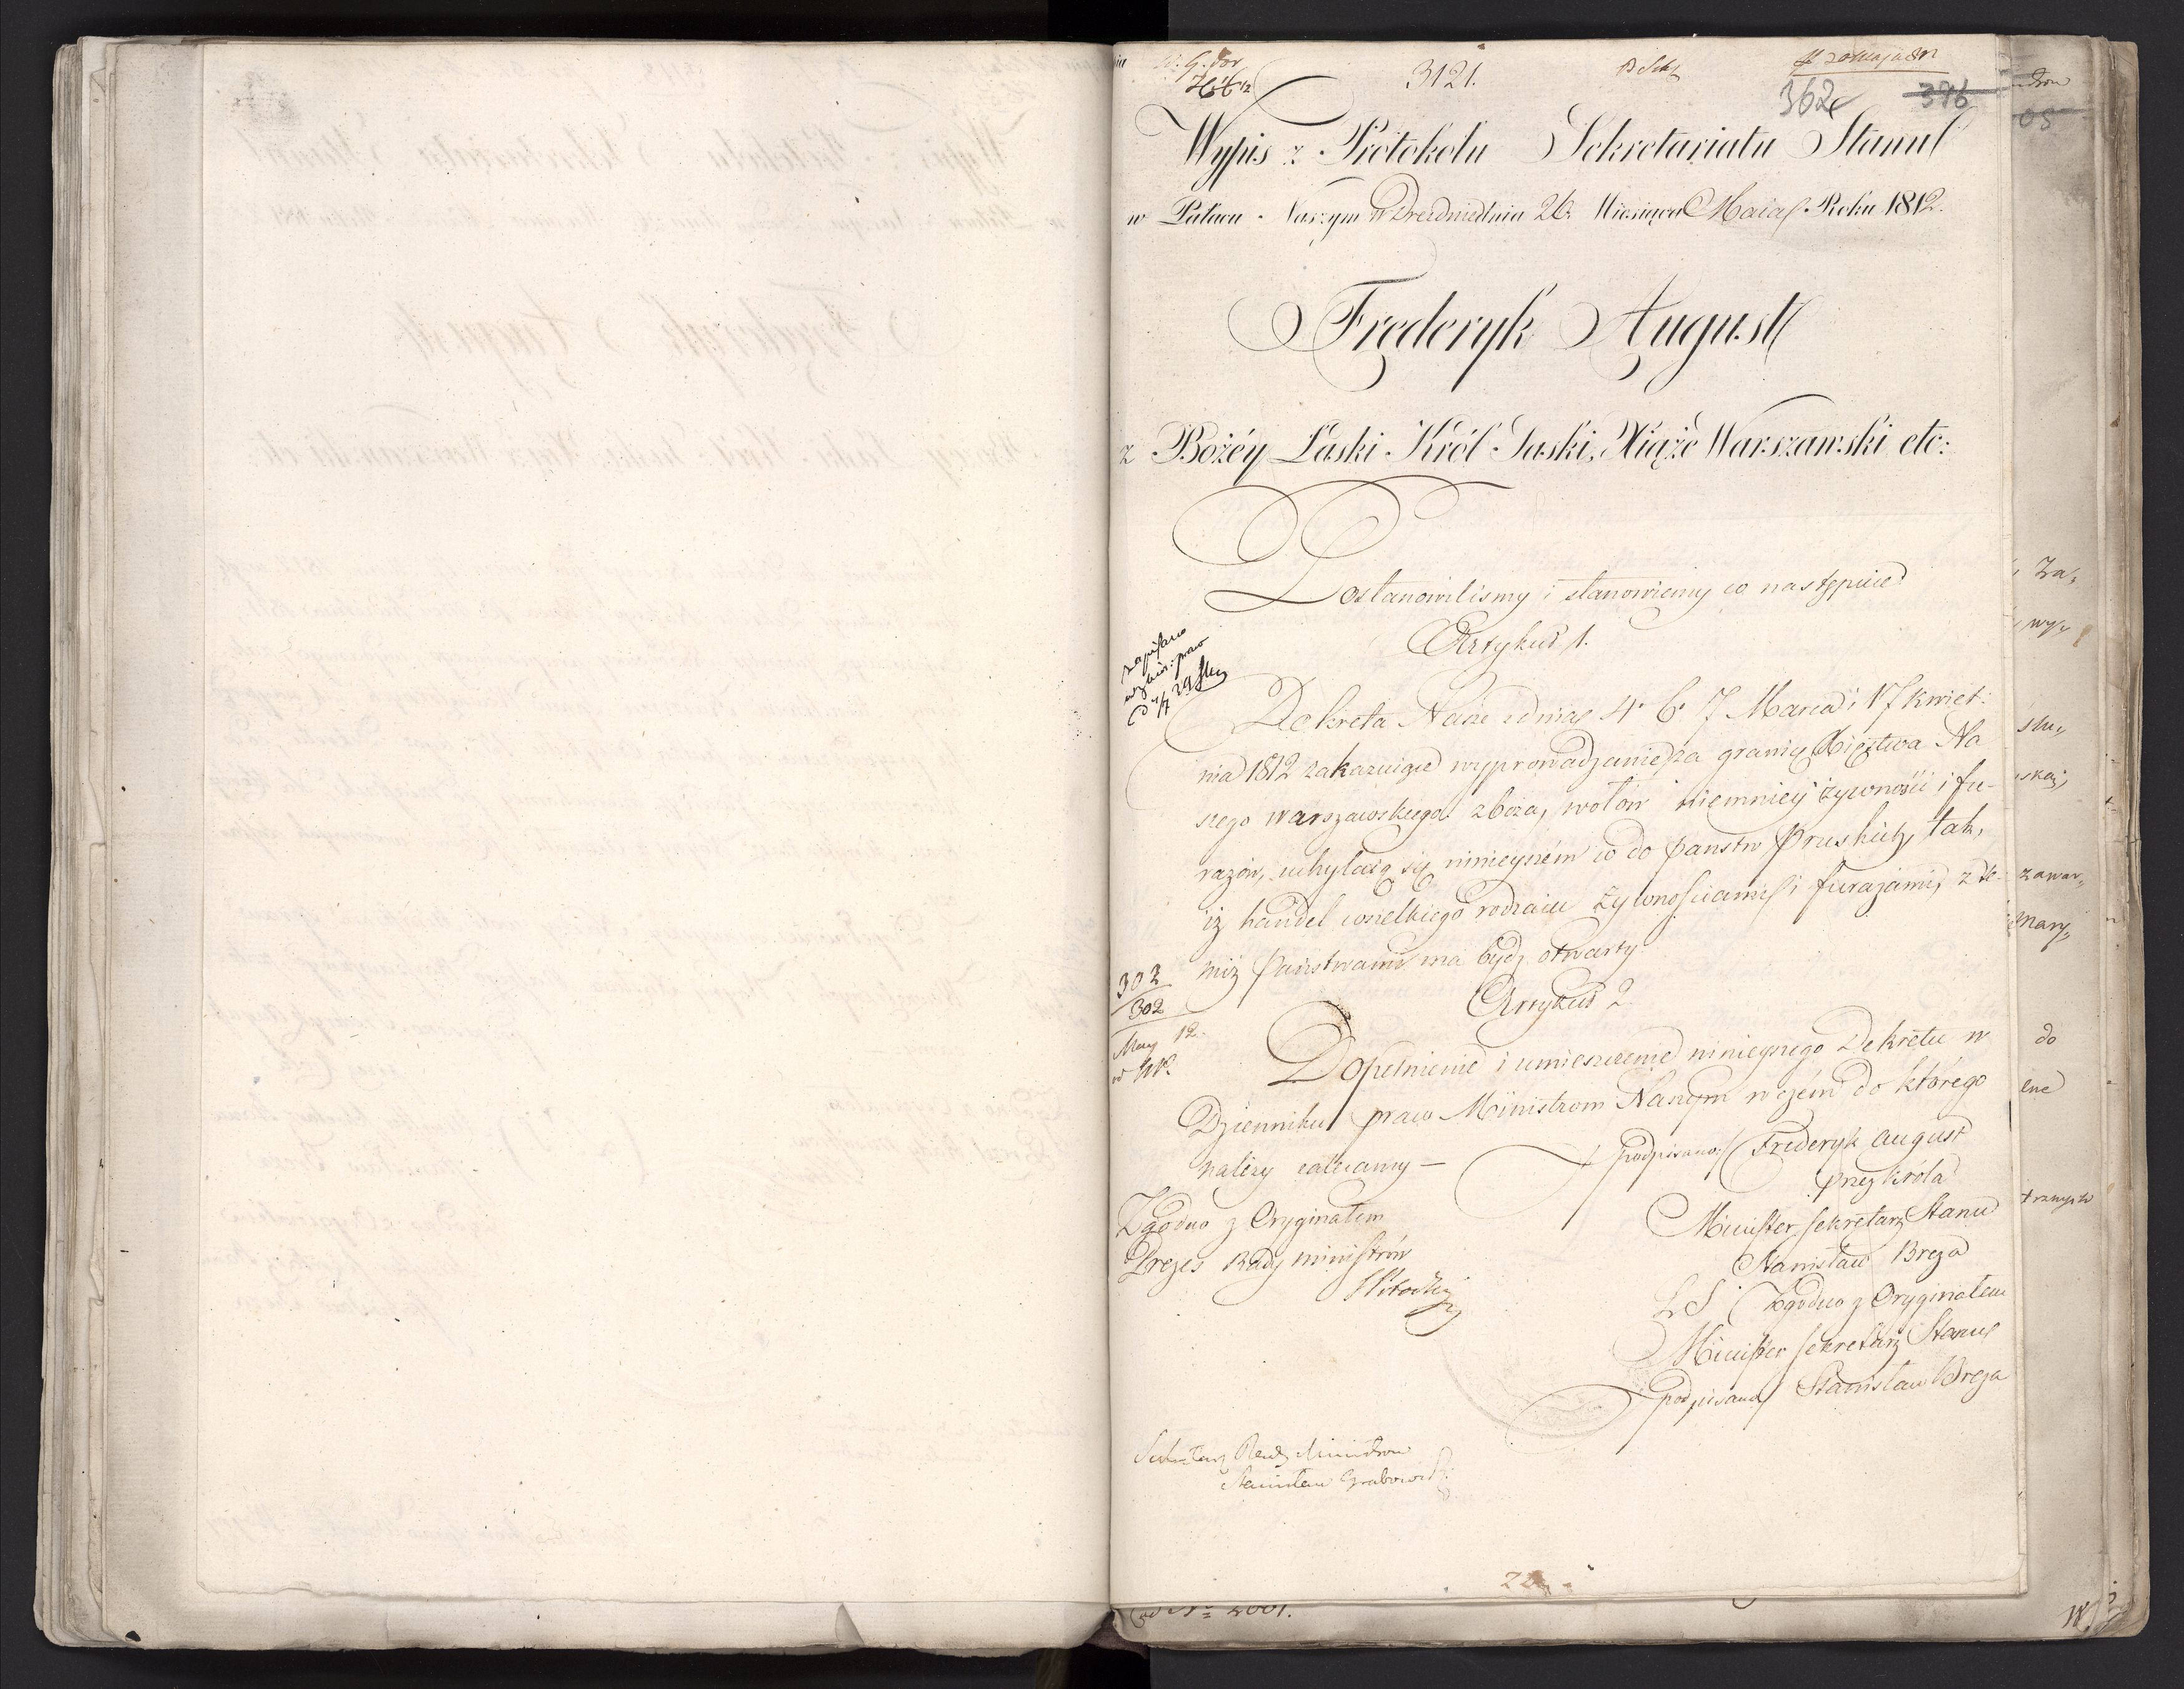 3121.
362 376
Wypis z Protokołu Sekretariatu Stanu
w Pałacu Naszym w Dreznie dnia 26. Miesiąca Maia Roku 1812.
Frederyk August
z Bożéy Łaski Król Saski, Xiąże Warszawski etc:
Postanowilismy i stanowiemy co następuie
Artykuł 1.
zapisano
w dzien: praw
Dekreta Nasze z dnia 4. 6. 7 Marca i 17 kwiet:
nia 1812 zakazuiące wyprowadzanie za granicę Xięstwa Na
szego warszawskiego zboża, wołów niemniey żywności i fu-
rażów, uchylaią się ninieyszém co do państw Pruskich, tak,
iż handel wszelkiego rodzaiu żywnościami i furażami, z te-
miż Państwami ma bydź otwarty
303
302
May 12.
Artykuł 2.
Dopełnienie i umieszczenie ninieyszego Dekretu w
Dzienniku praw Ministrom Naszym w czém do którego
należy zalecamy —
podpisano/ Frederyk August
przez króla
Minister Sekretarz Stanu
Stanisław Breza
LS Zgodno z Oryginałem
Minister Sekretarz Stanu
podpisano/ Stanisław Breza
Zgodno z Oryginałem
Prezes Rady Ministrów
Sekretarz Rady Ministrow
Stanisław Grabowski
do